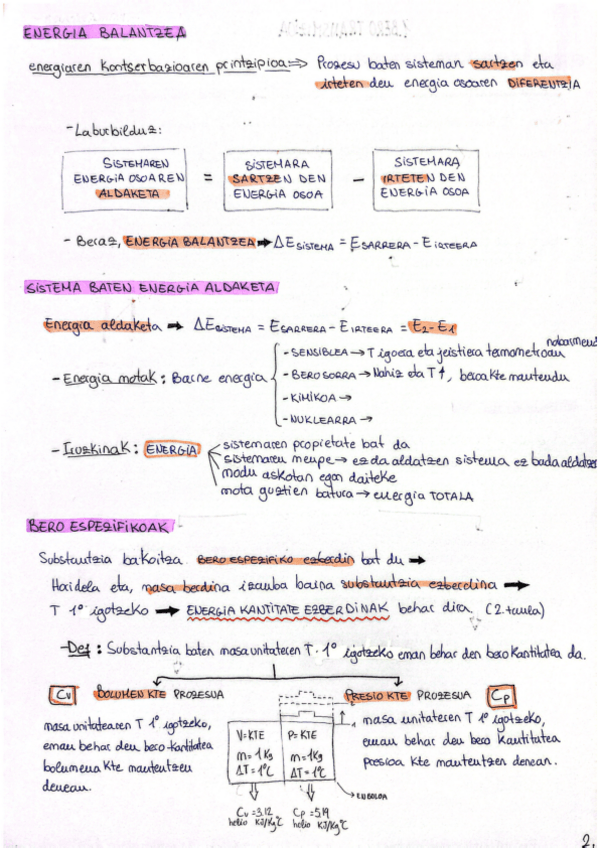 ENERGIA BALANTZEA
energiaren kontserbazioaren printzipioa ⇒ Prozesu baten sisteman sartzen eta
irteten den energia osoaren DIFERENTZIA
- Laburbilduz:
SISTEMAREN ENERGIA OSOAREN ALDAKETA = SISTEMARA SARTZEN DEN ENERGIA OSOA - SISTEMARA IRTETEN DEN ENERGIA OSOA
- Beraz, ENERGIA BALANTZEA → ΔE SISTEMA = E SARRERA - E IRTEERA
SISTEMA BATEN ENERGIA ALDAKETA
Energia aldaketa → ΔE SISTEMA = E SARRERA - E IRTEERA = E2 - E1
- Energia motak: Barne energia
- SENSIBLEA → T igoera eta jeistiera termometroan
- BERO SORRA → Nahiz eta T↑, beroa kte mantendu
- KIMIKOA →
- NUKLEARRA →
- Iruzkinak: ENERGIA
sistemaren propietate bat da
sistemaren menpe → ez da aldatzen sistema ez bada aldatzen
modu askotan egon daiteke
mota guztien batura → energia TOTALA
BERO ESPEZIFIKOAK
Substantzia bakoitza BERO ESPEZIFIKO ezberdin bat du →
Hori dela eta, masa berdina izanba baina substantzia ezberdina →
T 1° igotzeko → ENERGIA KANTITATE EZBERDINAK behar dira. (2. taula)
- Def: Substantzia baten masa unitateren T 1° igotzeko eman behar den bero kantitatea da.
Cv BOLUMEN KTE PROZESUA
masa unitatearen T 1° igotzeko,
eman behar den bero kantitatea
bolumena kte mantentzen
denean.
V=KTE
m=1Kg
ΔT=1°C
P=KTE
m=1Kg
ΔT=1°C
Cv=3.12
helio KJ/Kg°C
Cp=5.19
helio KJ/Kg°C
PRESIO KTE PROZESUA Cp
masa unitateren T 1° igotzeko,
eman behar den bero kantitatea
presioa kte mantentzen denean.
2.